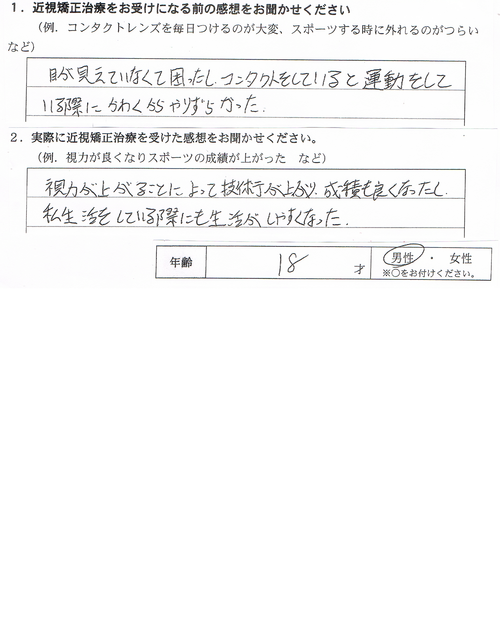 1．近視矯正治療をお受けになる前の感想をお聞かせください
（例．コンタクトレンズを毎日つけるのが大変、スポーツする時に外れるのがつらい
など）
目が見えていなくて困ったし、コンタクトをしていると運動をして
いる際にかわくからやりずらかった.
2．実際に近視矯正治療を受けた感想をお聞かせください。
（例．視力が良くなりスポーツの成績が上がった　など）
視力が上がることによって技術が上がり、成績も良くなったし、
私生活をしている際にも生活がしやすくなった.
年齢 18 才 男性 ・ 女性
※○をお付けください。